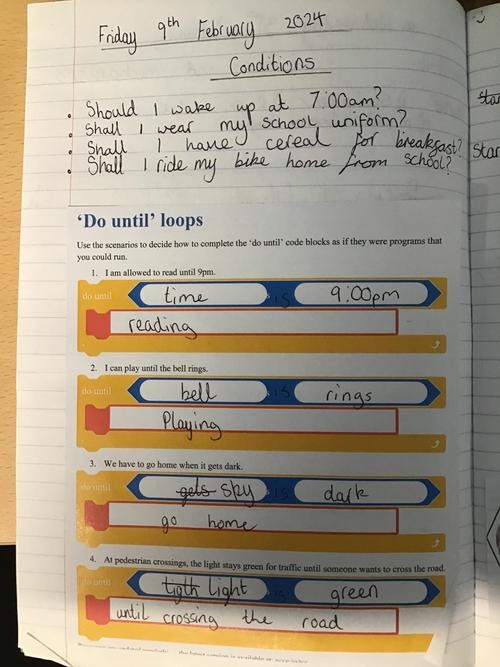 Friday 9th February 2024
Conditions
• Should I wake up at 7:00am?
• Shall I wear my school uniform?
• Shall I have cereal for breakfast?
• Shall I ride my bike home from school?
'Do until' loops
Use the scenarios to decide how to complete the 'do until' code blocks as if they were programs that
you could run.
1. I am allowed to read until 9pm.
do until time is 9:00pm
reading
2. I can play until the bell rings.
do until bell is rings
Playing
3. We have to go home when it gets dark.
do until gets sky is dark
go home
4. At pedestrian crossings, the light stays green for traffic until someone wants to cross the road.
do until tigth light is green
until crossing the road